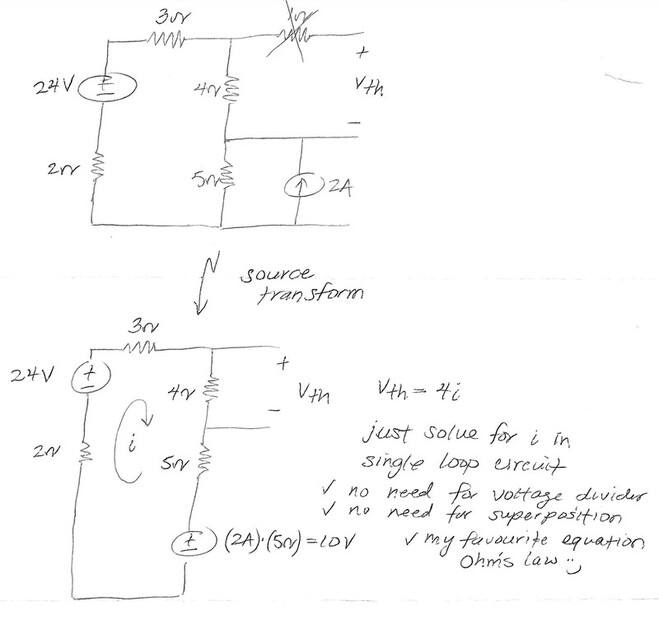 3Ω
24V
4Ω
+
Vth
−
2Ω
5Ω
2A
source
transform
3Ω
24V
+
4Ω
Vth
−
Vth = 4i
2Ω
i
5Ω
just solve for i in
single loop circuit
✓ no need for voltage divider
✓ no need for superposition
(2A)·(5Ω)=10V
✓ my favourite equation
Ohm's law :)